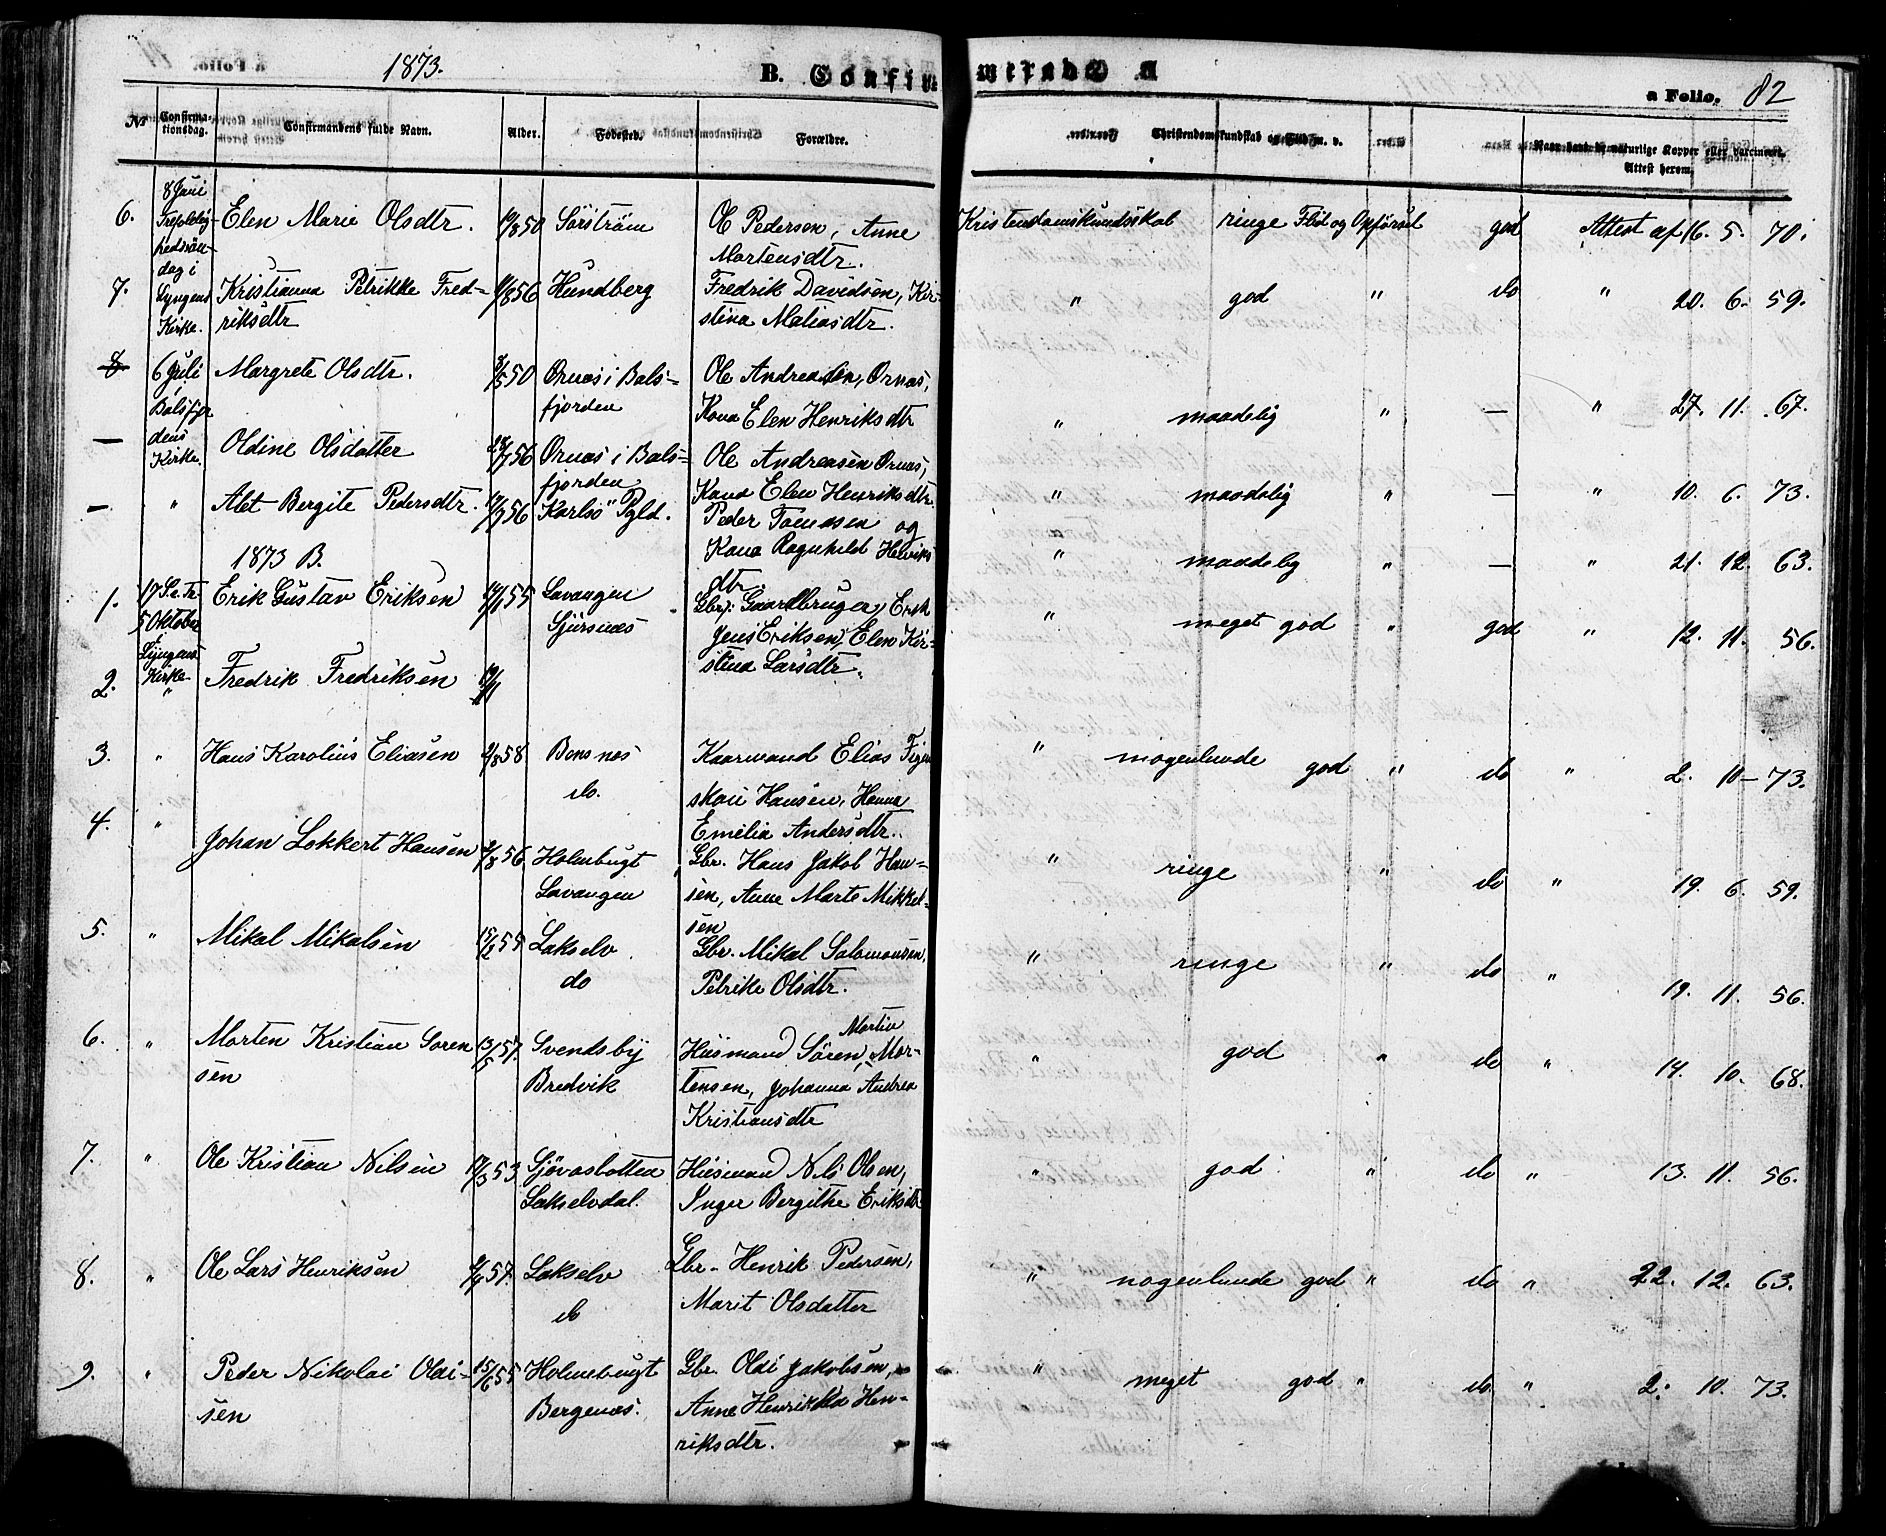 1873. B. Confirmerede a Folio. 82
No Confirmationsdag. Confirmandens fulde Navn. Alder. Fødested. Forældre. Christendomskundskab og Flid m. v. Naar havt de naturlige Kopper eller vaccineret. Attest herom.
6. 8 Juni Trefoldighedssøndag i Lyngens Kirke. Elen Marie Olsdtr. 50 Sørstrøm Ole Pedersen, Anne Martensdtr. Kristendomskundsskab ringe Flid og Opførsel god Attest af 16. 5. 70.
7. Kristianna Petrikke Fredriksdtr 56 Hundberg Fredrik Davidsen, Kirstina Matiasdtr. " god " do " 20. 6. 59.
8 6 Juli i Balsfjordens Kirke. Margrete Olsdtr. 50 Ørnæs i Balsfjorden Ole Andreasen, Ørnæs, Kona Elen Henriksdtr " maadelig " — " 27. 11. 67.
— Oldine Olsdatter 56 Ørnæs i Balsfjorden Ole Andreasen Ørnæs, Kona Elen Henriksdtr. " maadelig " — " 10. 6. 73.
— " Alet Bergite Pedersdtr. 56 Karlsö Pgld. Peder Tomasen og Kona Ragnhild Henriksdtr " maadelig " — " 21. 12. 63.
1873 B.
1. 17 S. e. Tr. 5 Oktober Lyngens Kirke. Erik Gustav Eriksen 55 Lavangen Sjursnæs Gbr: Gaardbruger, Erik Jens Eriksen, Elen Kirstina Larsdtr. " meget god " god " 12. 11. 56.
2. " Fredrik Fredriksen
3. " Hans Karolius Eliasen 2/8 58 Bensnes do. Kaarmand Elias Figenskou Hansen, Hanna Emelia Andersdtr. " nogenlunde god " do " 2. 10 — 73.
4. " Johan Lokkert Hansen 56 Holmbugt Lavangen Gbr. Hans Jakob Hansen, Anne Marte Mikkelsen " ringe " do " 19. 6. 59.
5. " Mikal Mikalsen 15/2 55 Lakselv do Gbr. Mikal Salomonsen, Petrike Olsdtr. " ringe " do " 19. 11. 56.
6. " Morten Kristian Sørensen 13/5 57. Svendsby Bredvik Husmand Søren Martin Mortensen, Johanna Andrea Kristiansdtr " god " do " 14. 10. 68.
7. " Ole Kristian Nilsen 53 Sjövasbotten Lakselvdal. Husmand Nils Olsen, Inger Bergithe Eriksdtr " god " do " 13. 11. 56.
8. " Ole Lars Henriksen 57. Lakselv do Gbr. Henrik Pedersen, Marit Olsdatter " nogenlunde god " do " 22. 12. 63.
9. " Peder Nikolai Oldisen 15/6 55 Holmebugt Bergenæs. Gbr. Oldi Jakobsen, Anne Henrikka Henriksdtr. " meget god " do " 2. 10. 73.